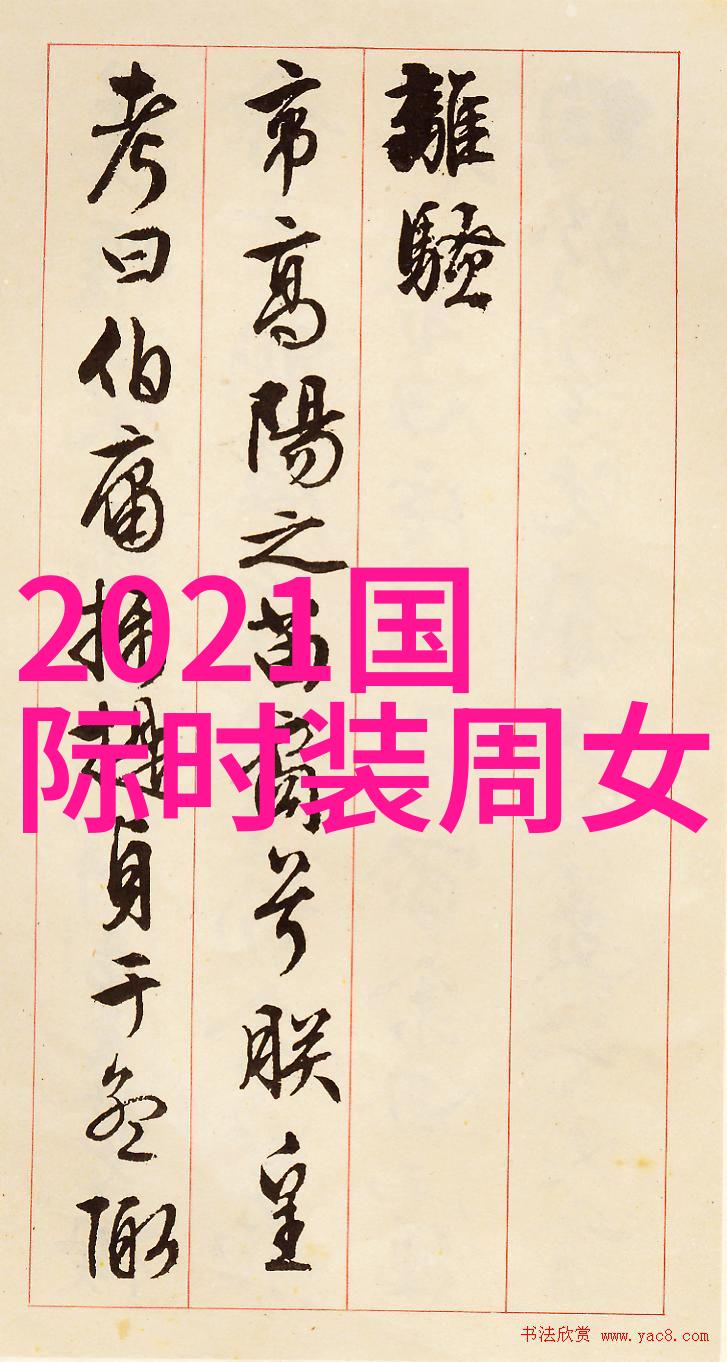 離騷
帝高陽之苗裔兮朕皇
考曰伯庸攝提貞于孟陬
2021国
际时装周女
书法欣赏 www.yac8.com